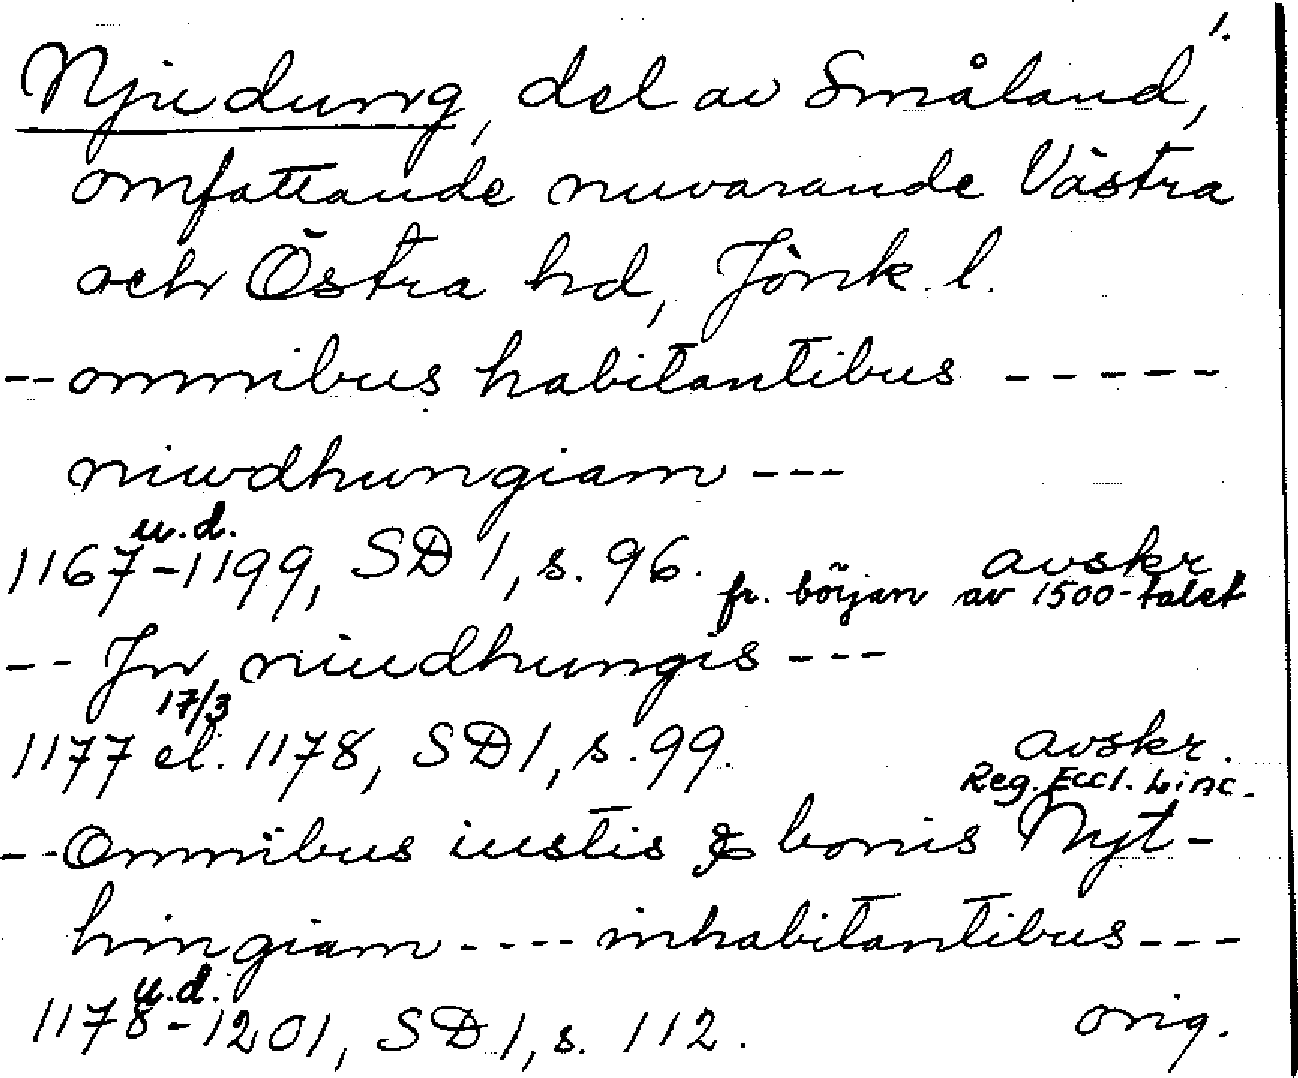 1.
Njudung, del av Småland,
omfattande nuvarande Västra
och Östra hd, Jönk. l.
-- omnibus habitantibus -----
niwdhungiam ---
u.d.
1167-1199, SD 1, s. 96. avskr
fr. början av 1500-talet
-- Jn niudhungis ---
17/3
1177 el. 1178, SD 1, s. 99. avskr.
Reg. Eccl. Linc.
-- Omnibus iustis & bonis Nyt-
hingiam ---- inhabitantibus ---
u.d.
1178-1201, SD 1, s. 112. orig.